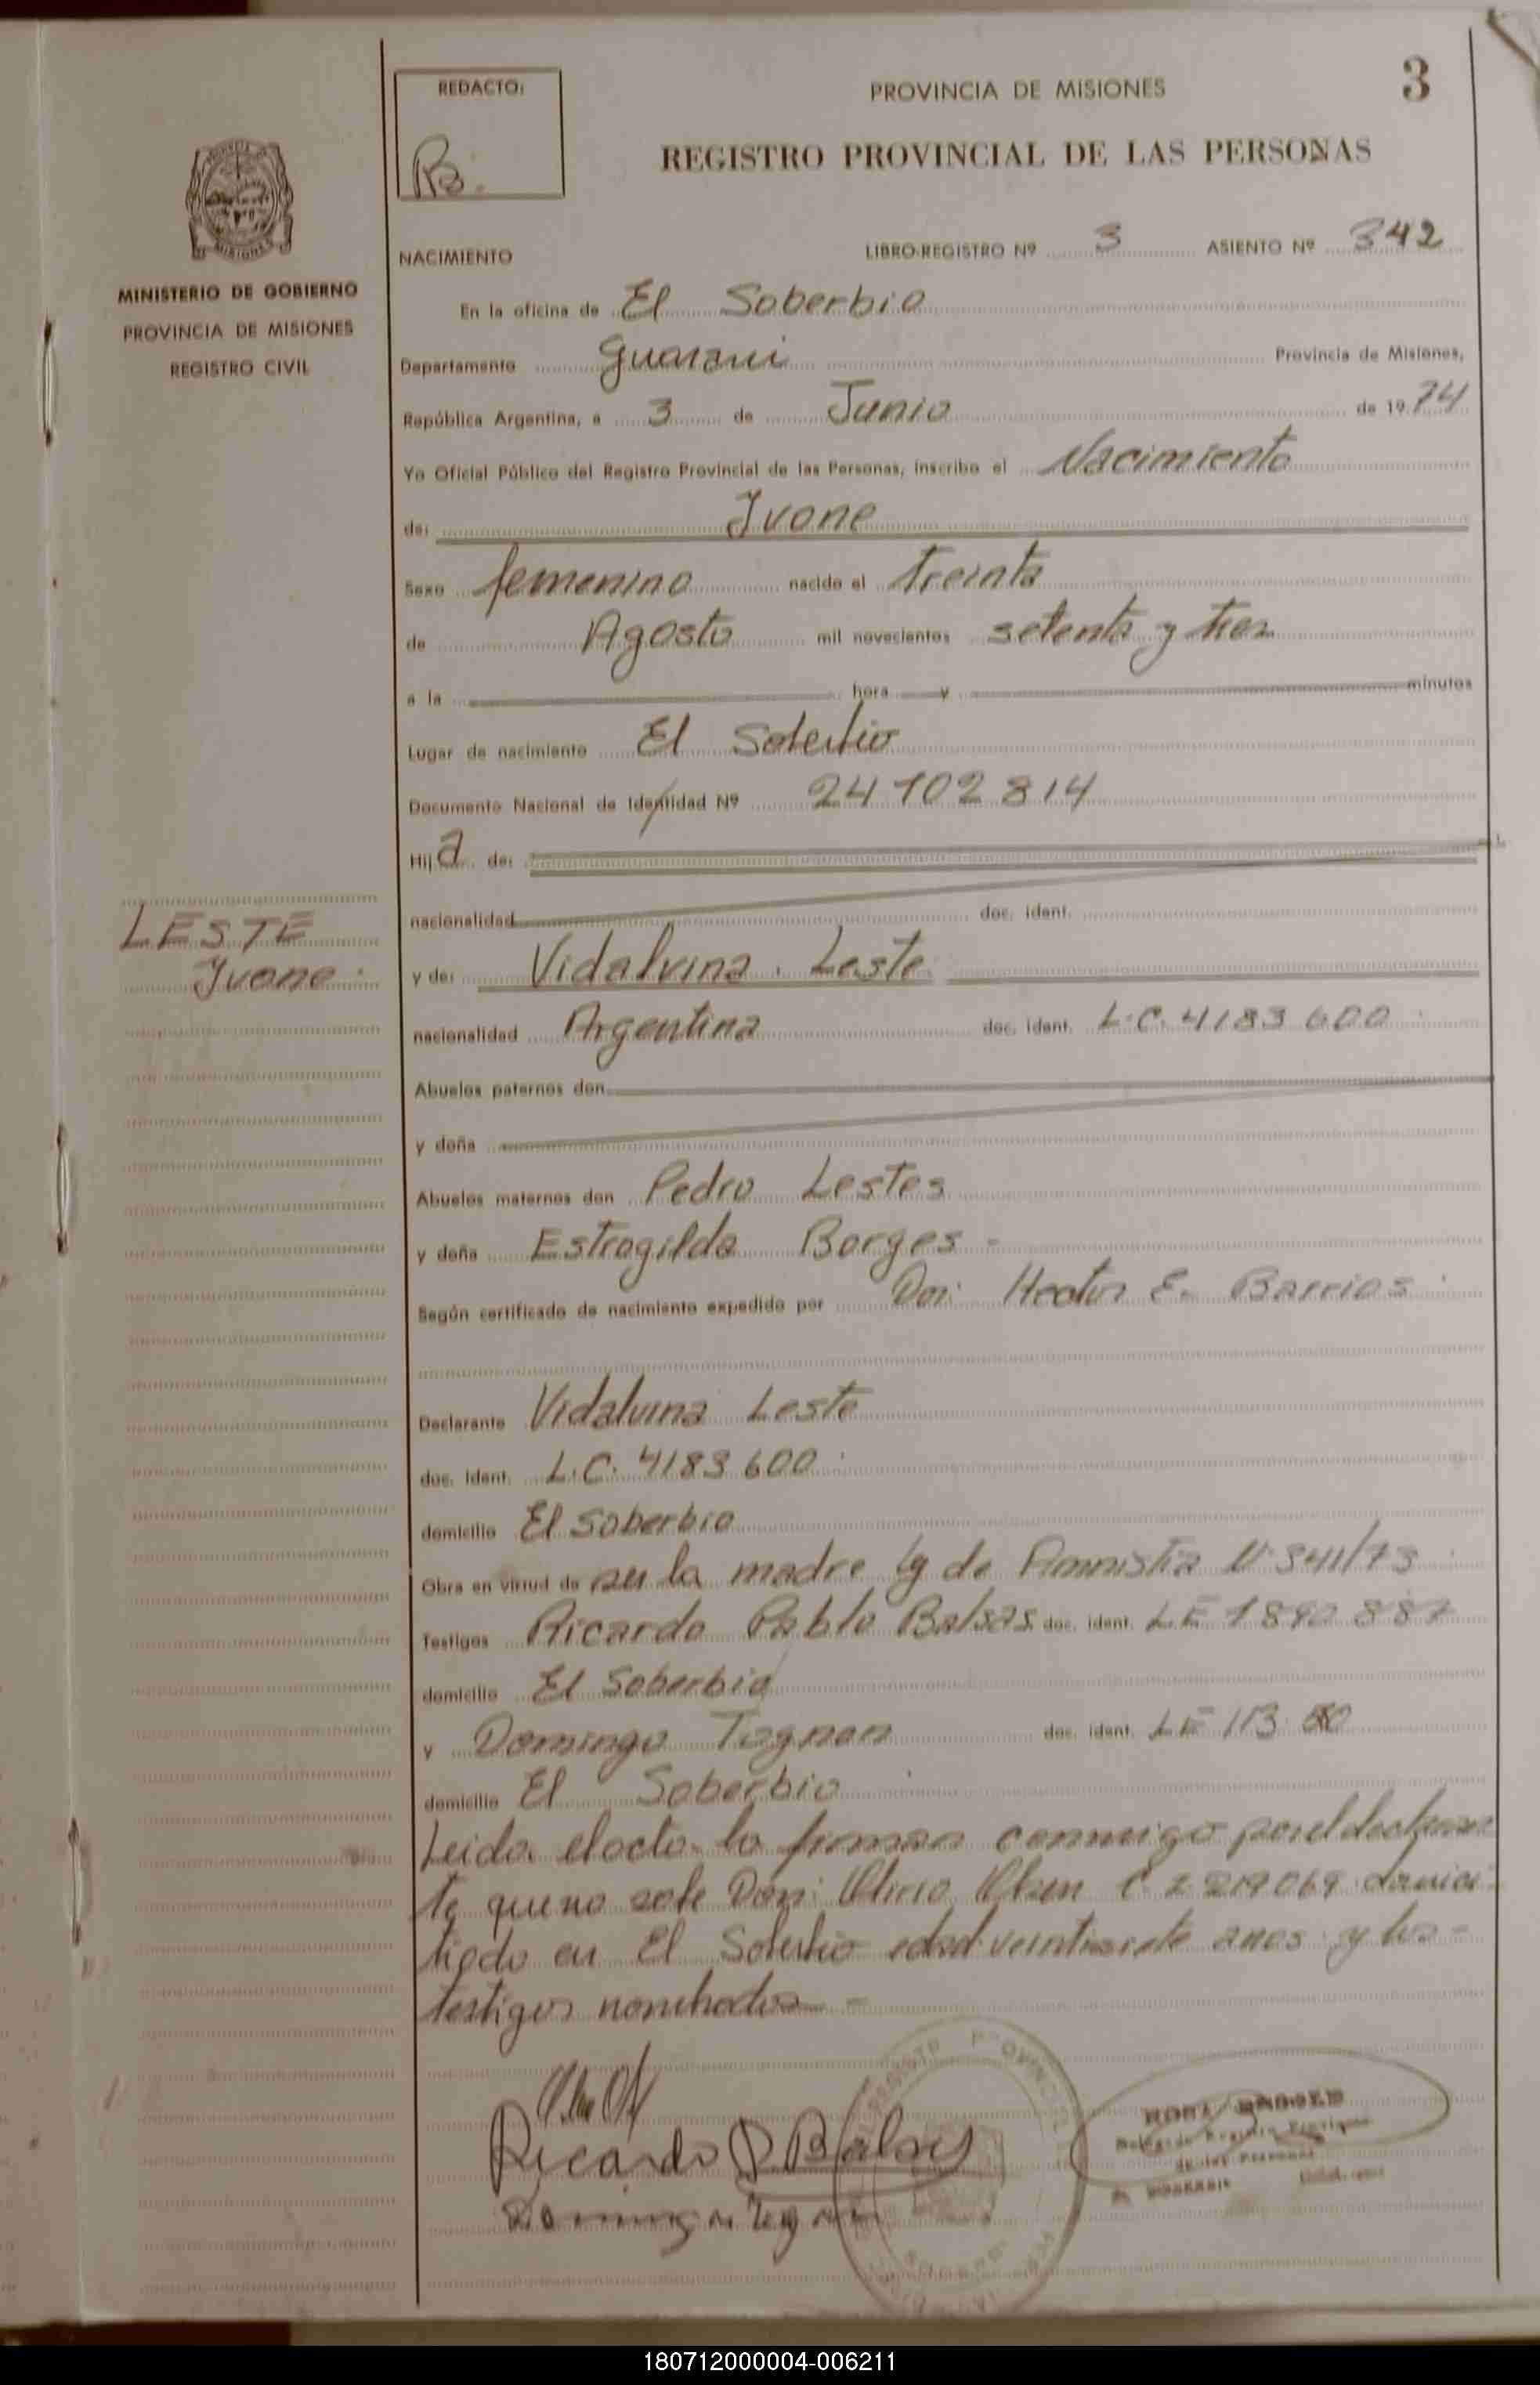 3
REDACTO:
B.
PROVINCIA DE MISIONES
REGISTRO PROVINCIAL DE LAS PERSONAS
MINISTERIO DE GOBIERNO
PROVINCIA DE MISIONES
REGISTRO CIVIL
NACIMIENTO LIBRO-REGISTRO Nº 3 ASIENTO Nº 342
En la oficina de El Soberbio
Departamento Guarani Provincia de Misiones,
República Argentina, a 3 de Junio de 1974
Yo Oficial Público del Registro Provincial de las Personas, inscribo el Nacimiento
de: Ivone
Sexo femenino nacido el treinta
de Agosto mil novecientos setenta y tres
a la hora y minutos
Lugar de nacimiento El Soberbio
Documento Nacional de Identidad Nº 24102814
Hija de:
nacionalidad doc. ident.
LESTE
Ivone
y de: Vidalvina Leste
nacionalidad Argentina doc. ident. L.C. 4183600
Abuelos paternos don
y doña
Abuelos maternos don Pedro Lestes
y doña Estrogilda Borges -
Según certificado de nacimiento expedido por Don: Hector E. Barrios
Declarante Vidalvina Leste
doc. ident. L.C. 4183600
domicilio El Soberbio
Obra en virtud de ser la madre ley de Amnistia Nº 341/73
Testigos Ricardo Pablo Balsas doc. ident. LE 1890887
domicilio El Soberbio
y Domingo Tognon doc. ident. LE 113
domicilio El Soberbio
Leida el acta la firman conmigo por el declaran
te que no sabe Don: domici
liado en El Soberbio edad veintisiete anos y los -
testigos nombrados -
Ricardo P Balsas
Domingo
180712000004-006211